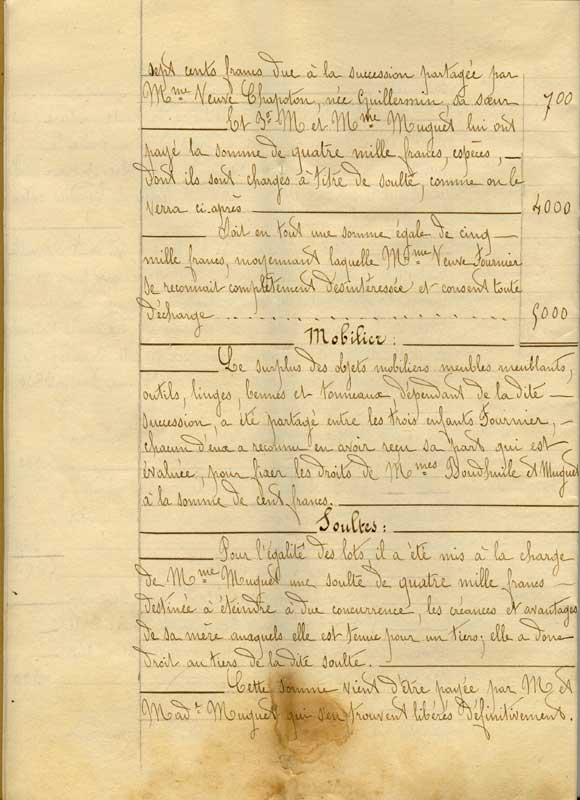 sept cents francs due à la succession partagée par
Mme Veuve Chapoton, née Guillermin, sa sœur 700
Et 3º M et Mme Muguet lui ont
payé la somme de quatre mille francs, espèces, —
dont ils sont chargés à titre de soulte, comme on le
verra ci-après 4000
Soit en tout une somme égale de cinq —
mille francs, moyennant laquelle Mme Veuve Fournier
se reconnait complètement désintéressée et consent toute
décharge . . . . . . . . . . 5000
Mobilier :
Le surplus des objets mobiliers meubles meublants,
outils, linges, bennes et tonneaux dépendant de la dite —
succession, a été partagé entre les trois enfants Fournier, —
chacun d'eux a reconnu en avoir reçu sa part qui est
évaluée, pour fixer les droits de Mmes Boudhuile et Muguet
à la somme de cent francs.
Soultes :
Pour l'égalité des lots, il a été mis à la charge
de Mme Muguet une soulte de quatre mille francs —
destinée à éteindre à due concurrence, les créances et avantages
de sa mère auxquels elle est tenue pour un tiers; elle a donc
droit au tiers de la dite soulte.
Cette somme vient d'être payée par M et
Made Muguet qui s'en trouvent libérés définitivement.